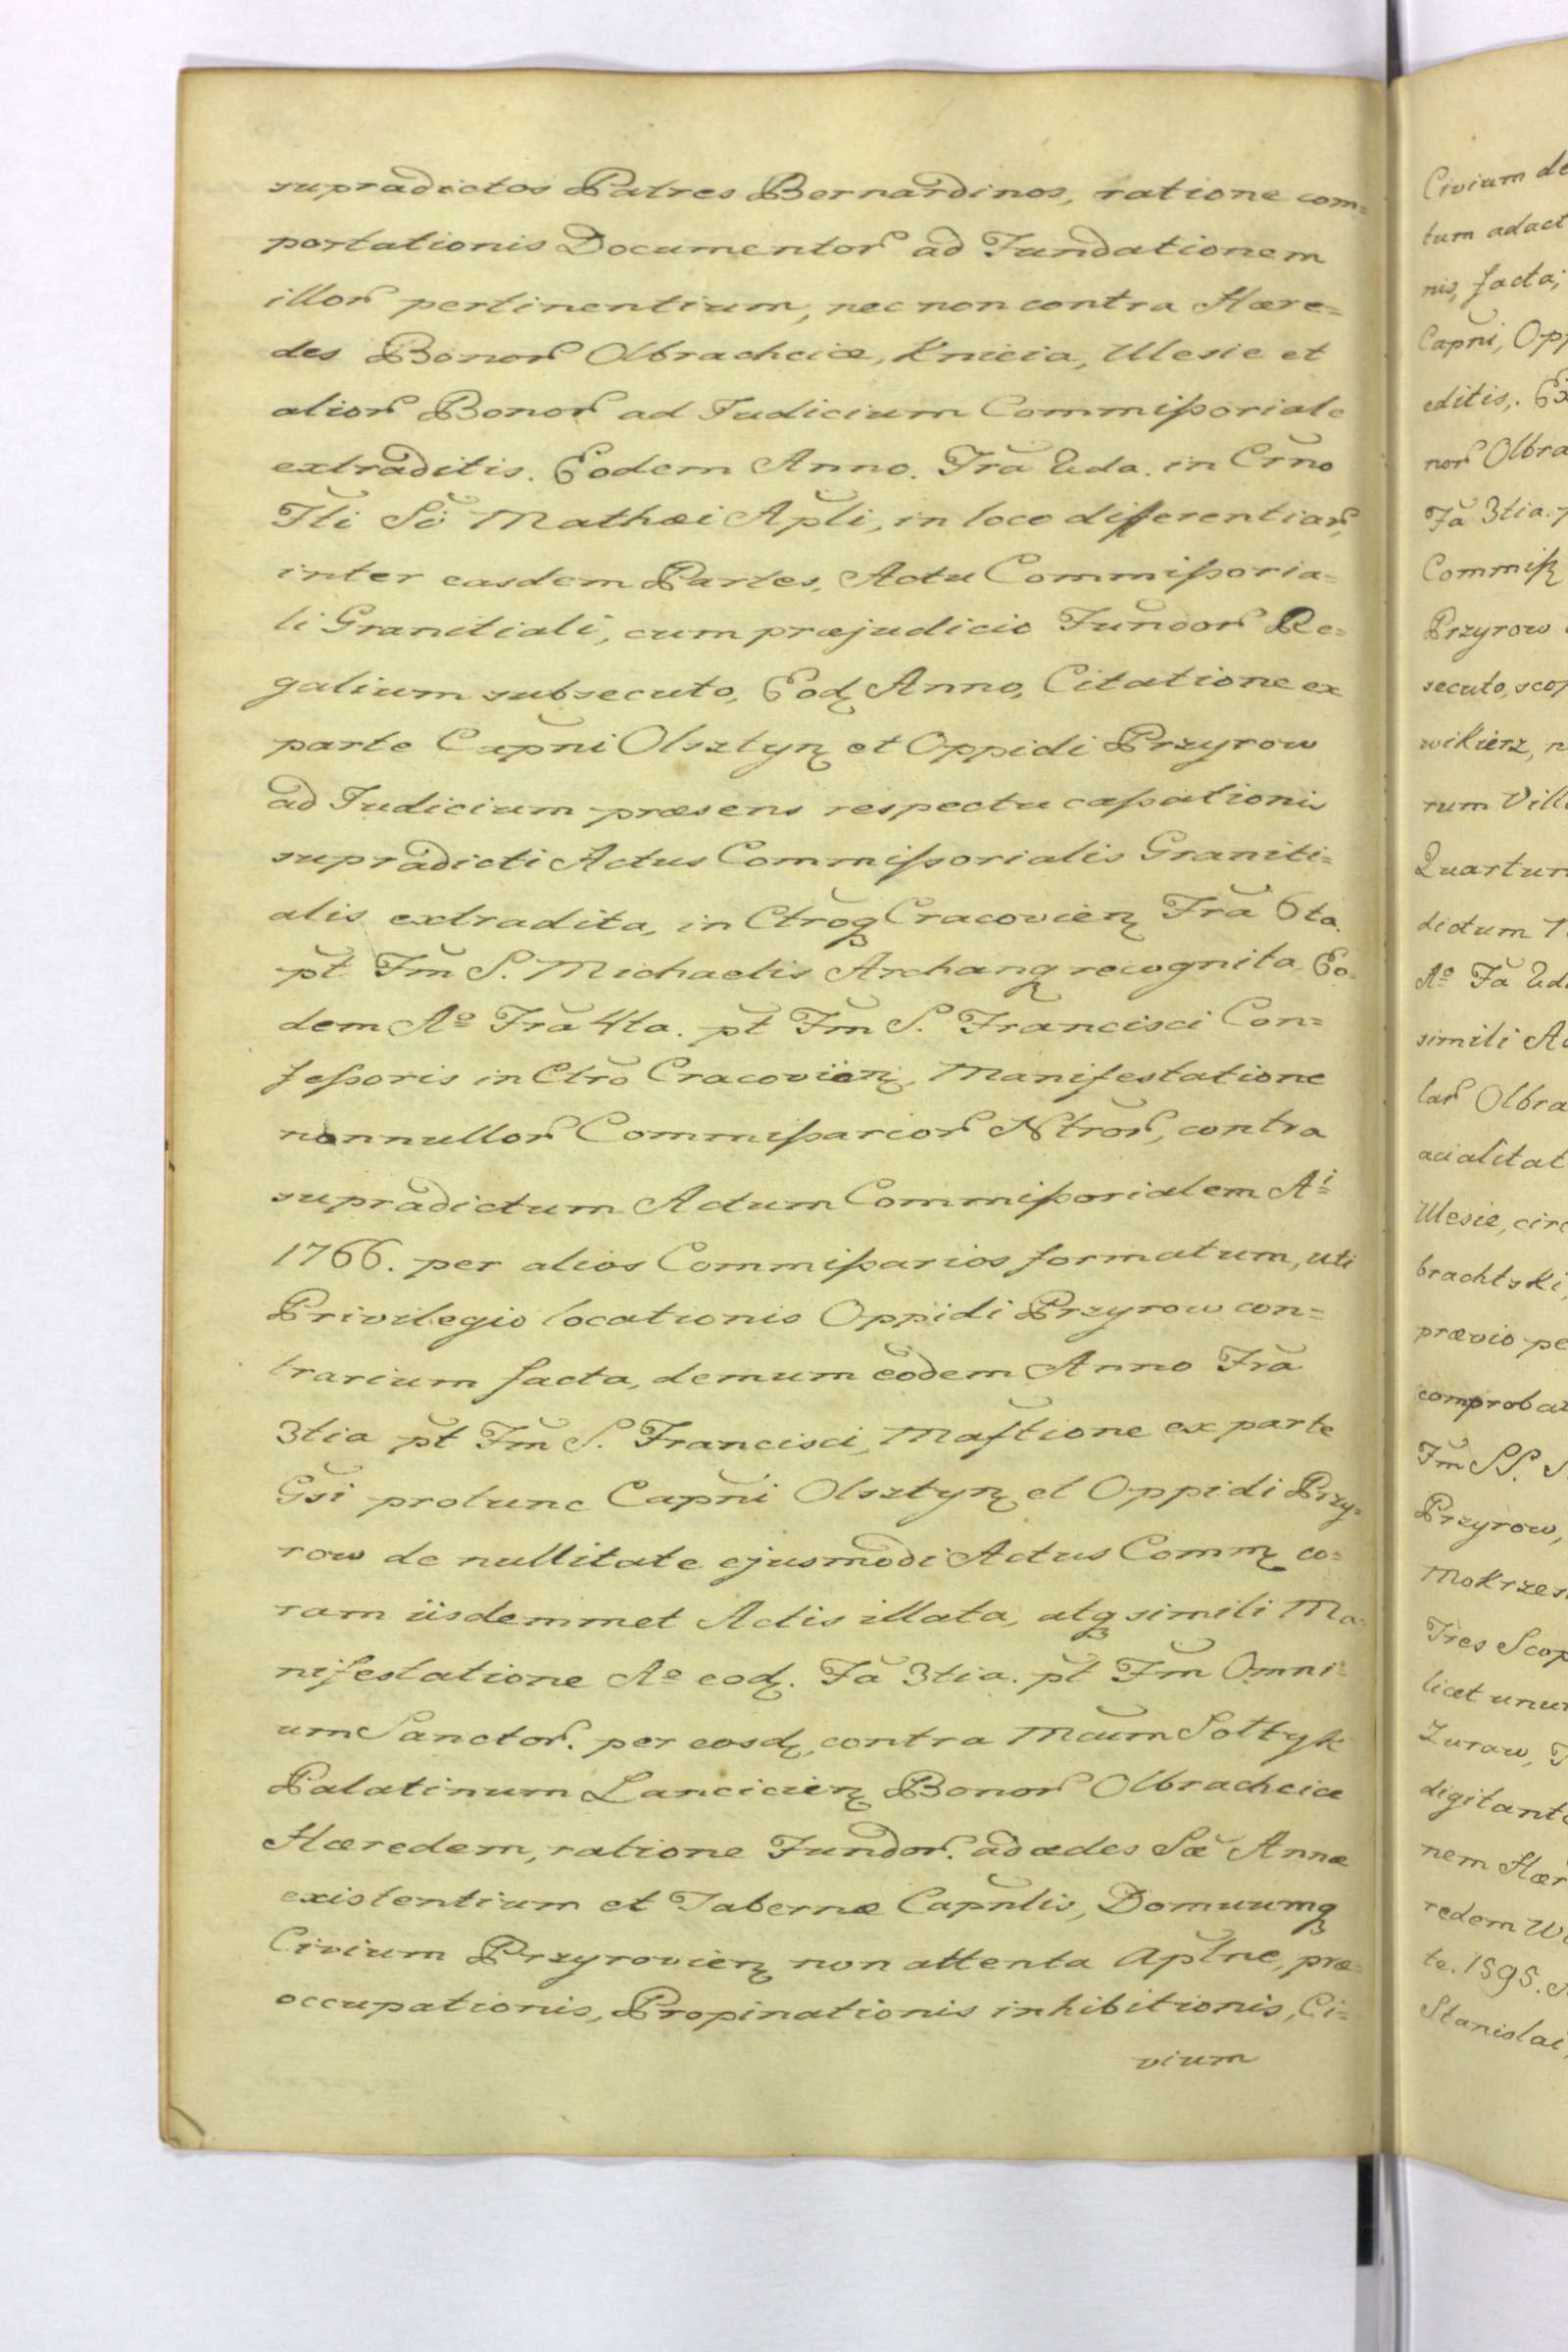 supradictos Patres Bernardinos, ratione com=
portationis Documentor̃ ad Fundationem
illor̃ pertinentium, nec non contra Hære=
des Bonor̃ Olbrachcicæ, Knieia, Ulesie et
alior̃ Bonor̃ ad Judicium Commissoriale
extraditis. Eodem Anno. Fr̃a 2da. in Cr̃no
Fti Si Mathæi Apl̃i, in loco differentiar̃,
inter easdem Partes, Actu Commissoria=
li Granitiali, cum præjudicio Fundor̃ Re=
galium subsecuto, Eodꝫ Anno, Citatione ex
parte Capñi Olsztynꝫ et Oppidi Przyrow
ad Judicium præsens respectu cassationis
supradicti Actus Commissorialis Graniti=
alis extradita, in Ctrõqꝫ Cracovienꝫ Fr̃a 6ta.
p̃t Fm̃ S. Michaelis Archangꝫ recognita Eo=
dem Aº Fr̃a 4ta. p̃t Fm̃ S. Francisci Con=
fessoris in Ctrõ Cracovienꝫ, Manifestatione
nonnullor̃ Commissarior̃ Ntror̃, contra
supradictum Actum Commissorialem Aⁱ
1766. per alios Commissarios formatum, uti
Privilegio locationis Oppidi Przyrow con=
trarium facta, demum eodem Anno Fr̃a
3tia p̃t Fm̃ S. Francisci, Mas̃tione ex parte
Gs̃i protunc Capñi Olsztynꝫ et Oppidi Przy=
row de nullitate ejusmodi Actus Commꝫ co=
ram iisdemmet Actis illata, atqꝫ simili Ma=
nifestatione Aº eodꝫ. Fã 3tia. p̃t Fm̃ Omni=
um Sanctor̃. per eosdꝫ, contra Mcum̃ Sołtyk
Palatinum Lancicienꝫ Bonor̃ Olbrachcicæ
Hæredem, ratione Fundor̃. ad ædes Sæ̃ Annæ
existentium et Tabernæ Capñlis, Domuumqꝫ
Civium Przyrovienꝫ non attenta Apl̃ne, præ=
occupationis, Propinationis inhibitionis, Ci=
vium
Civium de
tum adact
nis, facta;
Capñi, Op
editis,. Ex
nor̃ Olbra
Fã 3tia.
Commissꝫ
Przyrow
secuto, scop
wikierz, n
rum Vill
Quartum
dictum
Aº Fã 2d
simili A
lar̃ Olbra
acialitat
Ulesie, circ
brachtski,
prævio pe
comproba
Fm̃ SS. S
Przyrow,
Mokrzes
Tres Scop
licet unu
Zuraw,
digitant
nem Hær
redem W
te. 1595.
Stanislai,